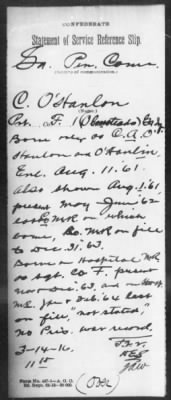 CONFEDERATE
Statement of Service Reference Slip.
Ga. Pen. Com.
(Source of communication.)
C. O'Hanlon
(Name.)
Pvt. Co. F. 1 (Olmstead's) Ga. Inf.
Borne only as C. A. O'
Hanlon and O'Hanlin,
Enl. Aug. 11. '61.
Also shown Aug. 1, '61,
present May & June '62
last Co MR on which
borne, Co. MR on file
to Dec. 31. '63.
Borne on Hospital MR
as sgt. Co F. present
Nov & Dec. '63, and on Hosp.
MR Jan & Feb. '64 last
on file, "not stated,"
no Pris. war record.
3-14-16.
11
Form No. 447-1—A. G. O.